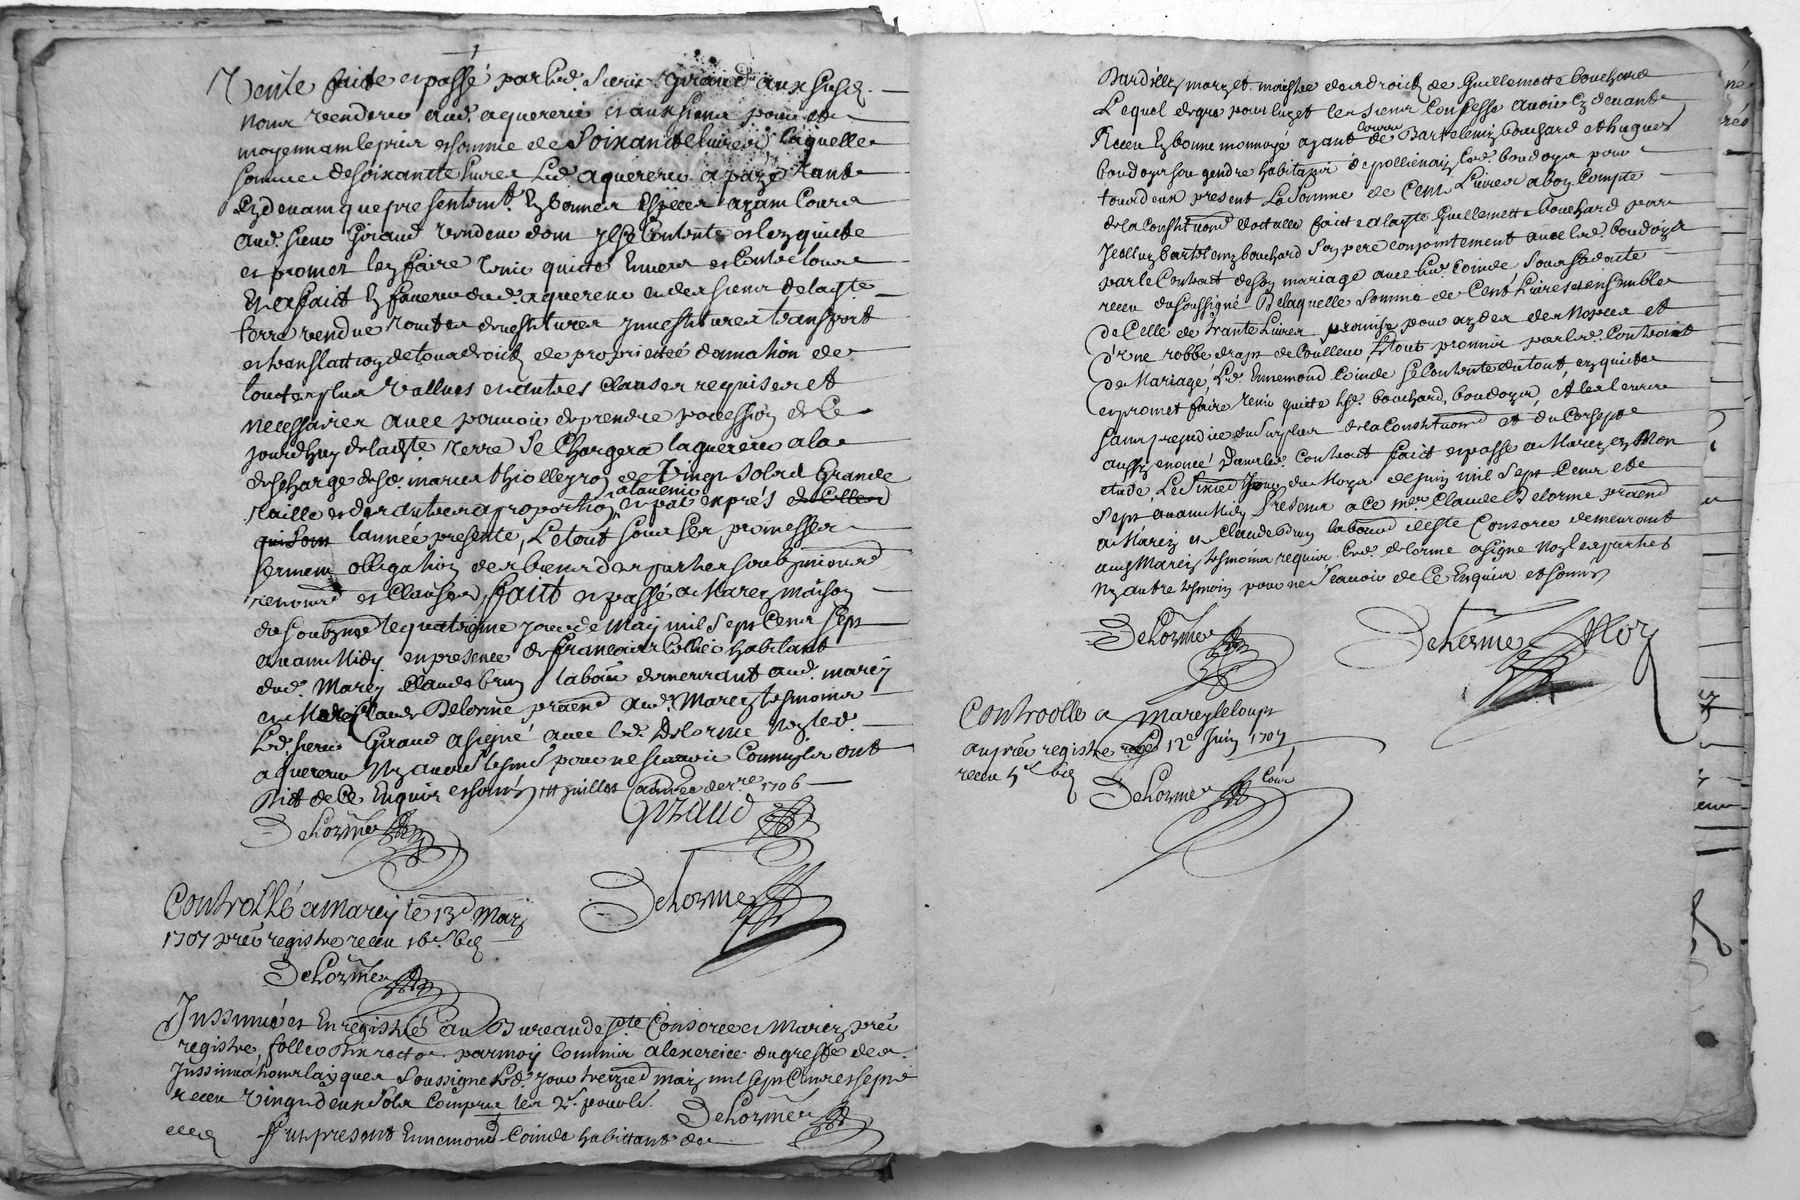 Vente faite et passé par led. sieur Giraud aux susd.
nom vendeur aud. aquereur et aux siens pour et
moyennant le prix et somme de Soixante livres laquelle
somme de soixante livres led. aquereur a payé tant
cy devant que presentemt. En bonnes Especes ayant Cours
aud. sieur Giraud vendeur dont il se Contente et len quicte
et promet len faire tenir quicte Envers et Contre tous
En a fait En faveur dud. aquereur et des siens de lad.te
terre vendue toutes devestitures Investitures transport
et translattion de tous droicts de proprietté donnation de
touttes plus vallues et autres clauses requises et
necessaires avec pouvoir de prendre possession de Ce
jourdhuy de lad.te Terre Se Chargera laquereur a la
descharge de sr. marcel thiolleyron de Vingt sols de Grande
taille et des autres a proportion a lavenir et pas en prés
lannée presente, Le tout sous ses promesses
serment obligation des biens des parties soubzmissions
renond et clauses, fait et passé a Marcy maison
de soubzné le quatrième jour de May mil Sept Cent Sept
avant Midy en presence de francois Collier habitant
dud. Marcy Claude brun labour demeurant aud. marcy
et Me Claude Delorme praend aud. Marcy tesmoins
Led. sieur Giraud a signé avec led. Delorme Non led.
aquereur Ny autre tesmoin pour ne scavoir Comme Ils ont
Dict de Ce Enquis et sommés
1706
Delorme Giraud
Delorme
Controllé a marcy le 13e May
1707 pr. registre receu 16s. 6d
Delorme
Inssinué et Enregistré au Bureau de Ste Consorce et Marcy pr.
registre, follio dix recto par moy Commis a lexercice du greffe des
Inssinuations layques Soussigné led. jour treizie may mil sept Cent et sept
receu vingt deux sols Compris les 2s. pour l.
Delorme
Fut present Ennemond Coindé habittant de
Lequel de gré pour luy et les siens Confesse avoir Cy devant
Receu En bonne monnoye ayant Cours de Bartelemy bouchard et hugues
boudoyer son gendre habitans de pollienay led. boudoyer pour
tous deux present La Somme de Cent Livres a bon Compte
de la Constitution dottalle faitte a lad.te Guillemette bouchard par
led. Bartelemy bouchard Son pere conjointement avec led. boudoyer
par le Contract de son mariage avec led. Coindé Sous sa datte
receu du Soussigné De laquelle Somme de Cent Livres et ensemble
De Celle de trante Livres promise pour ayder des Nopces et
d'une robbe drap de Coulleur Le tout promis par led. Contract
de Mariage, Led. Ennemond Coindé se Contente du tout, en quicte
et promet faire tenir quicte lesd. bouchard, boudoyer, et les leurs
sans prejudice du surplus de la Constitution et du
aussy enoncé dans led. Contract fait et passé a Marcy en Mon
etude, Le Jour du Moys de Juin mil Sept Cent et
Sept avant Midy Presens a Ce me. Claude Delorme praend
a Marcy et Claude brun labour de Ste Consorce demeurant
aud. Marcy tesmoins requis Led. Delorme a signé Non les parties
Ny autre tesmoin pour ne Scavoir de Ce Enquis et sommés
Delorme Delorme Noy
Controollé a Marcy le Loup
au pr. registre 12e Juin 1707
receu 5s 6d
Delorme